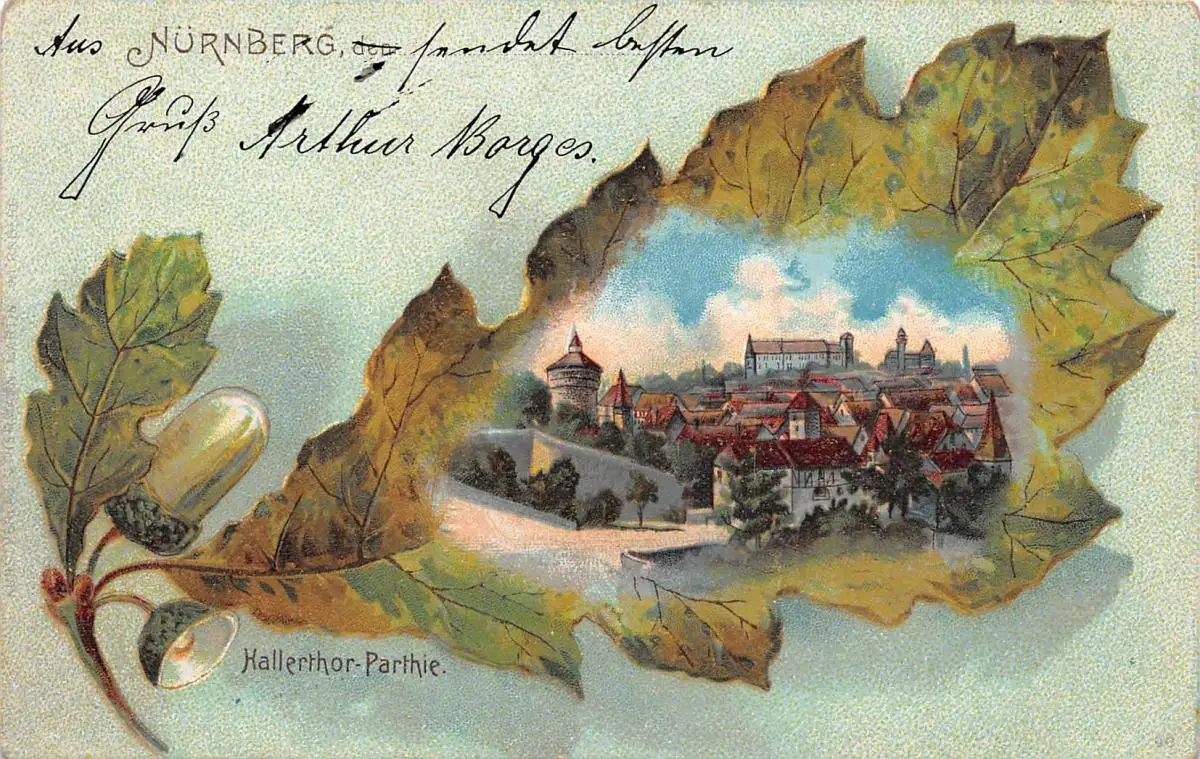 Aus NÜRNBERG, den sendet besten
Gruß Arthur Borges.
Hallerthor-Parthie.